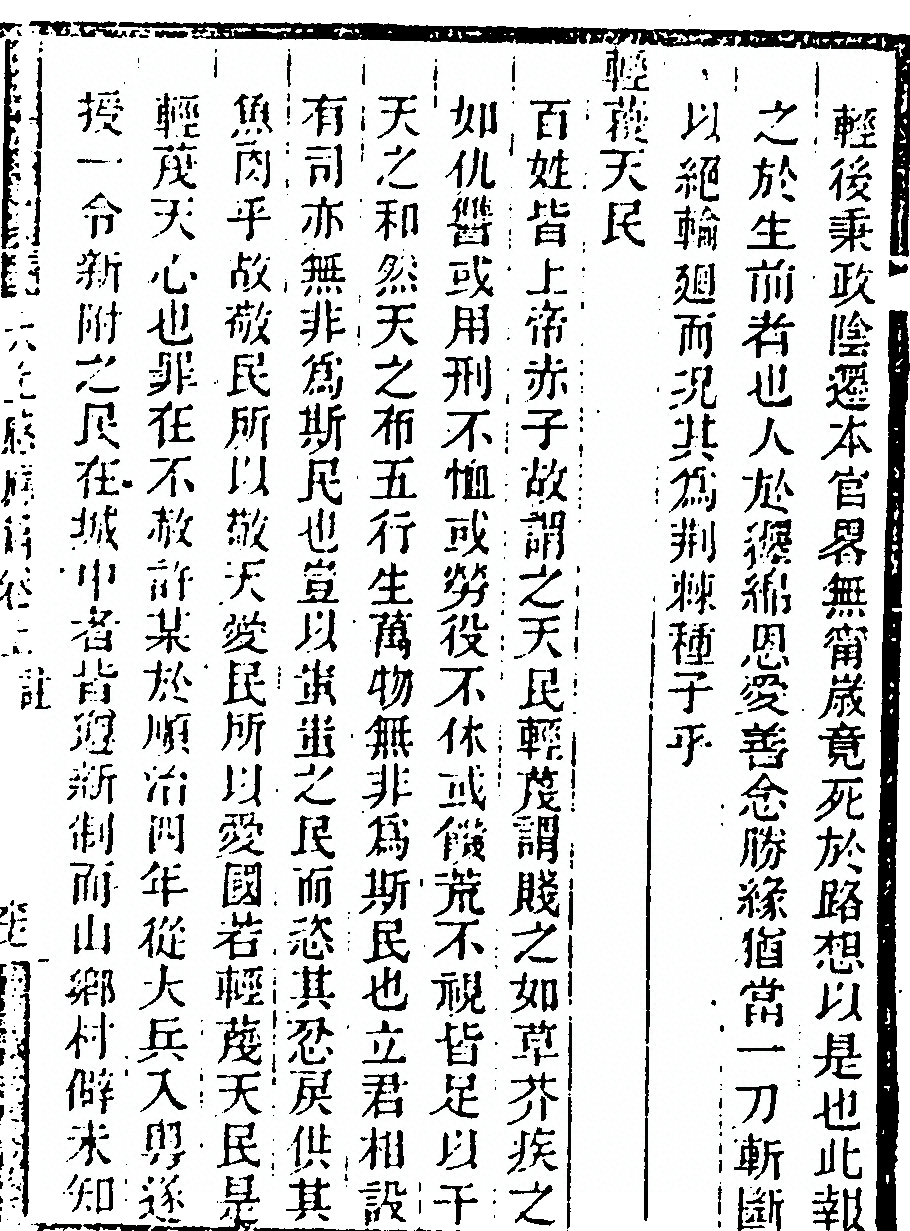 輕後秉政陰遷本官畧無甯歳竟死於路想以是也此報
之於生前者也人於纒綿恩愛善念勝緣猶當一刀斬斷
以絕輪廻而況其為荆棘種子乎
輕蔑天民
百姓皆上帝赤子故謂之天民輕蔑謂賤之如草芥疾之
如仇讐或用刑不恤或勞役不休或饑荒不視皆足以干
天之和然天之布五行生萬物無非為斯民也立君相設
有司亦無非為斯民也豈以蚩蚩之民而恣其忍戾供其
魚肉乎故敬民所以敬天愛民所以愛國若輕蔑天民是
輕蔑天心也罪在不赦許某於順治四年從大兵入粵遂
授一令新附之民在城中者皆遵新制而山鄉村僻未知